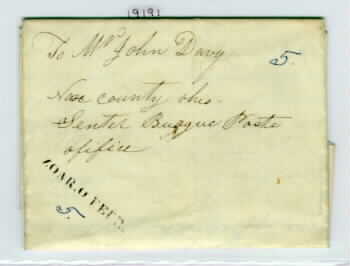 19191
To Mr John Davy
5.
Noxe county ohio.
Senter Buggue Poste
ofifice
ZOAR. O FEB.
5.